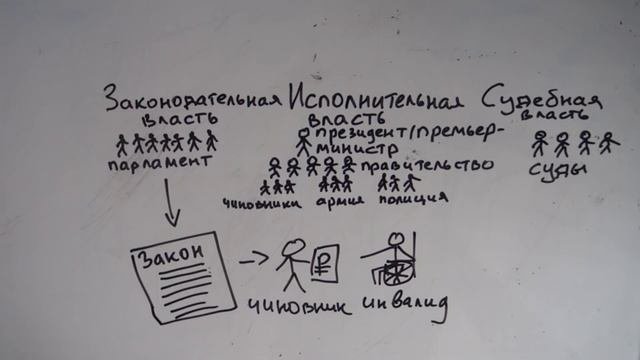 Законодательная
власть
парламент
Исполнительная
власть
президент/премьер-
министр
правительство
чиновники армия полиция
Судебная
власть
суды
Закон
₽
чиновник инвалид